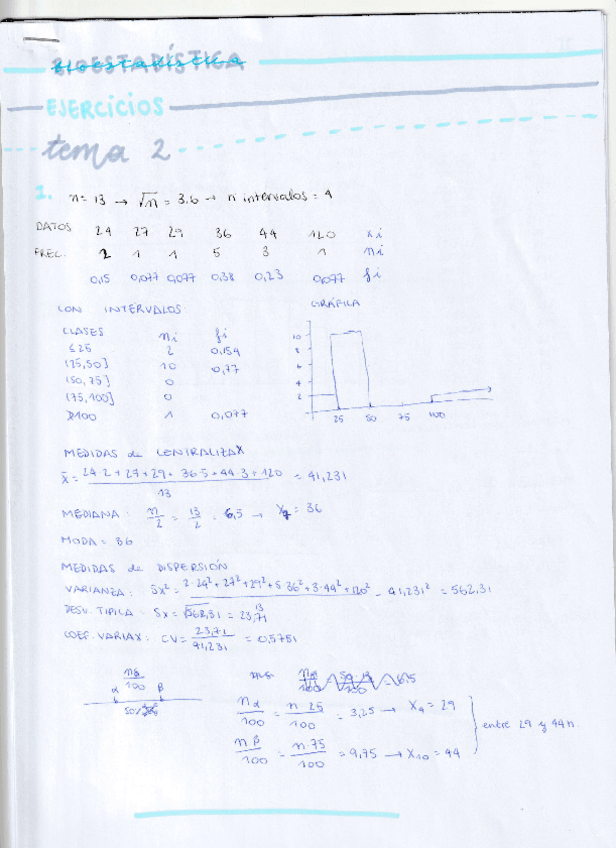 BIOESTADÍSTICA
EJERCICIOS
tema 2
1. n = 13 → √n = 3.6 → n intervalos = 4
DATOS 24 27 29 36 44 120 xi
FREC. 2 1 1 5 3 1 ni
0,15 0,077 0,077 0,38 0,23 0,077 fi
CON INTERVALOS GRÁFICA
CLASES ni fi
≤25 2 0,154
(25,50] 10 0,77
(50,75] 0
(75,100] 0
>100 1 0,077
10
8
6
4
2
25 50 75 100
MEDIDAS de CENTRALIZAX
x̄ = 24·2+27+29+36·5+44·3+120 / 13 = 41,231
MEDIANA: n/2 = 13/2 = 6,5 → X7 = 36
MODA = 36
MEDIDAS de DISPERSIÓN
VARIANZA: Sx² = 2·24²+27²+29²+5·36²+3·44²+120² / 13 - 41,231² = 562,31
DESV. TIPICA: Sx = √562,31 = 23,71
COEF. VARIAX: CV = 23,71 / 41,231 = 0,5751
α β
50%
nα/100 = n·25/100 = 3,25 → X4 = 29
nβ/100 = n·75/100 = 9,75 → X10 = 44
entre 29 y 44